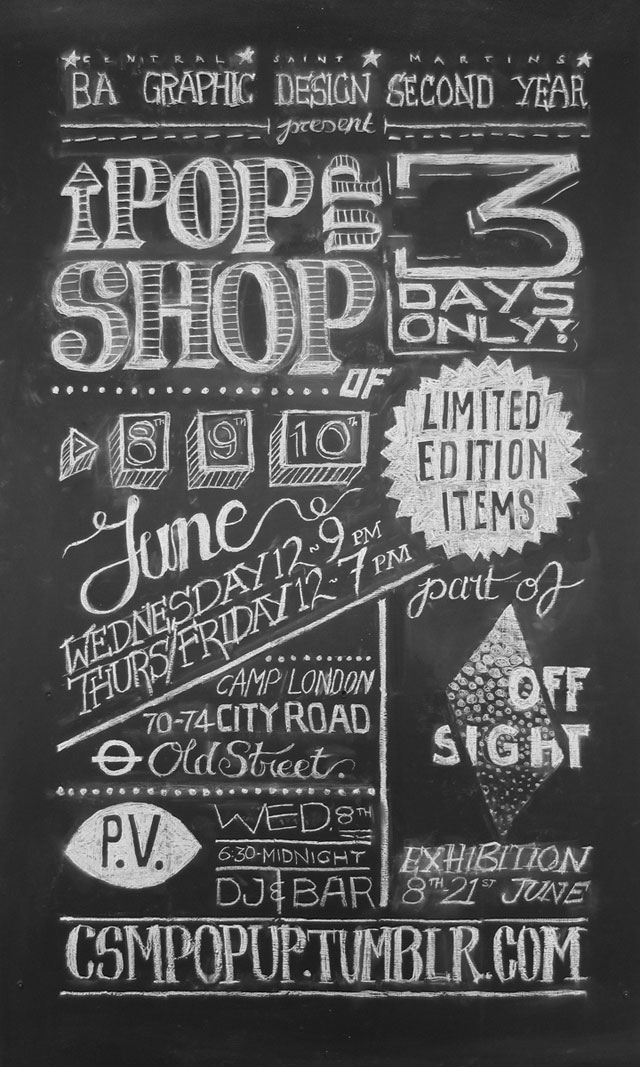 CENTRAL SAINT MARTINS
BA GRAPHIC DESIGN SECOND YEAR
present
POP UP
SHOP
3
DAYS
ONLY!
OF
LIMITED
EDITION
ITEMS
8TH 9TH 10TH
June
WEDNESDAY 12~9PM
THURS/FRIDAY 12~7PM
part of
OFF
SIGHT
EXHIBITION
8TH 21ST JUNE
CAMP/LONDON
70-74 CITY ROAD
Old Street.
P.V.
WED. 8TH
6:30-MIDNIGHT
DJ & BAR
CSMPOPUP.TUMBLR.COM